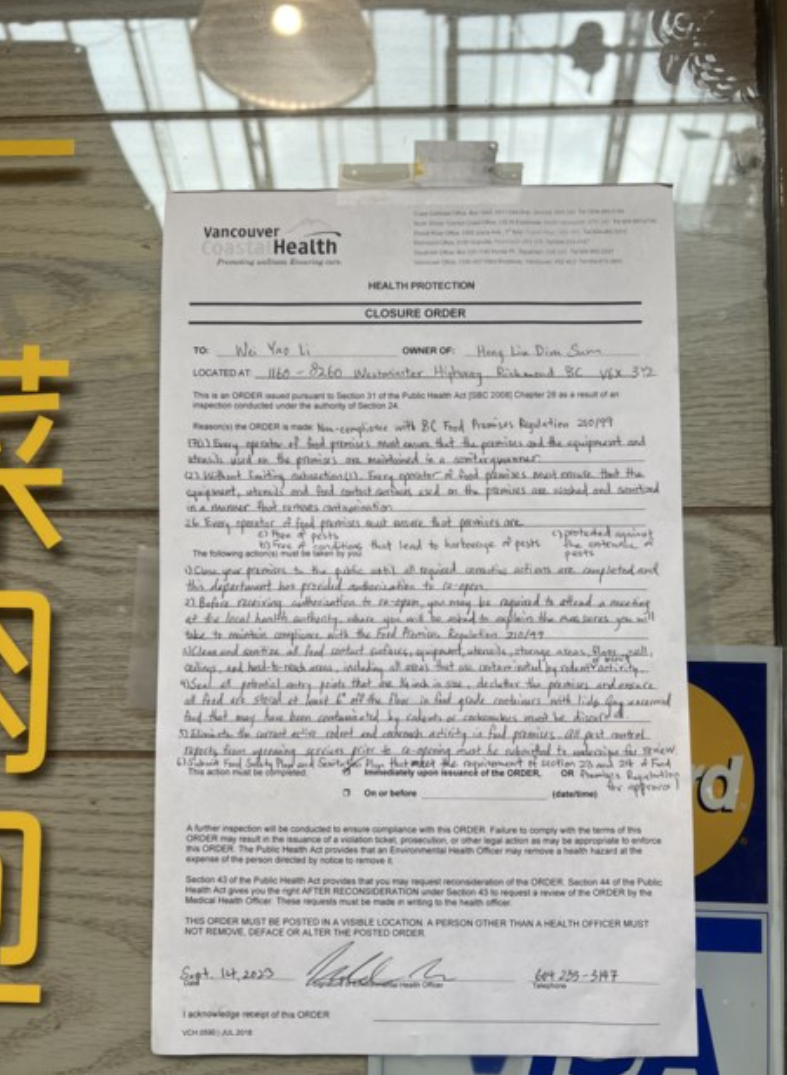 Vancouver
CoastalHealth
Promoting wellness. Ensuring care.
HEALTH PROTECTION
CLOSURE ORDER
TO: Wei Yao Li OWNER OF: Hong Liu Dim Sum
LOCATED AT: 1160 - 8260 Westminster Highway, Richmond BC V6X 3Y2
This is an ORDER issued pursuant to Section 31 of the Public Health Act [SBC 2008] Chapter 28 as a result of an
inspection conducted under the authority of Section 24.
Reason(s) the ORDER is made: Non-compliance with BC Food Premises Regulation 210/99
Every operator of food premises must ensure that the premises and the equipment and
utensils used on the premises are maintained in a sanitary manner
(2) Without limiting subsection (1). Every operator of food premises must ensure that the
equipment, utensils and food contact surfaces used on the premises are washed and sanitized
in a manner that removes contamination
26. Every operator of food premises must ensure that premises are
Free of pests
b) Free of conditions that lead to harbourage of pests
c) protected against
the entrance of
pests
The following action(s) must be taken by you
1) Close your premises to the public until all required corrective actions are completed and
this department has provided authorization to re-open
2) Before receiving authorization to re-open, you may be required to attend a meeting
at the local health authority, where you will be asked to explain the measures you will
take to maintain compliance with the Food Premises Regulation 210/99
3) Clean and sanitize all food contact surfaces, equipment, utensils, storage areas, floors, wall,
ceilings, and hard-to-reach areas, including all areas that are contaminated by rodent activity
4) Seal all potential entry points that are 1/4 inch in size, declutter the premises and ensure
all food are stored at least 6" off the floor in food grade containers with lids. Any uncovered
food that may have been contaminated by rodents or cockroaches must be discard
5) Eliminate the current active rodent and cockroach activity in food premises. All pest control
reports from upcoming services prior to re-opening must be submitted to undersign for review
6) Submit Food Safety Plan and Sanitation Plan that meet the requirement of section 23 and 24 of Food
Premises Regulation
for approval
This action must be completed. Immediately upon issuance of the ORDER. OR
On or before (date/time)
A further inspection will be conducted to ensure compliance with this ORDER. Failure to comply with the terms of this
ORDER may result in the issuance of a violation ticket, prosecution, or other legal action as may be appropriate to enforce
this ORDER. The Public Health Act provides that an Environmental Health Officer may remove a health hazard at the
expense of the person directed by notice to remove it.
Section 43 of the Public Health Act provides that you may request reconsideration of the ORDER. Section 44 of the Public
Health Act gives you the right AFTER RECONSIDERATION under Section 43 to request a review of the ORDER by the
Medical Health Officer. These requests must be made in writing to the health officer.
THIS ORDER MUST BE POSTED IN A VISIBLE LOCATION. A PERSON OTHER THAN A HEALTH OFFICER MUST
NOT REMOVE, DEFACE OR ALTER THE POSTED ORDER
Sept. 14, 2023 604 233-3147
Date Environmental Health Officer Telephone
I acknowledge receipt of this ORDER
VCH.0590 | JUL.2018
菜
rd
VISA